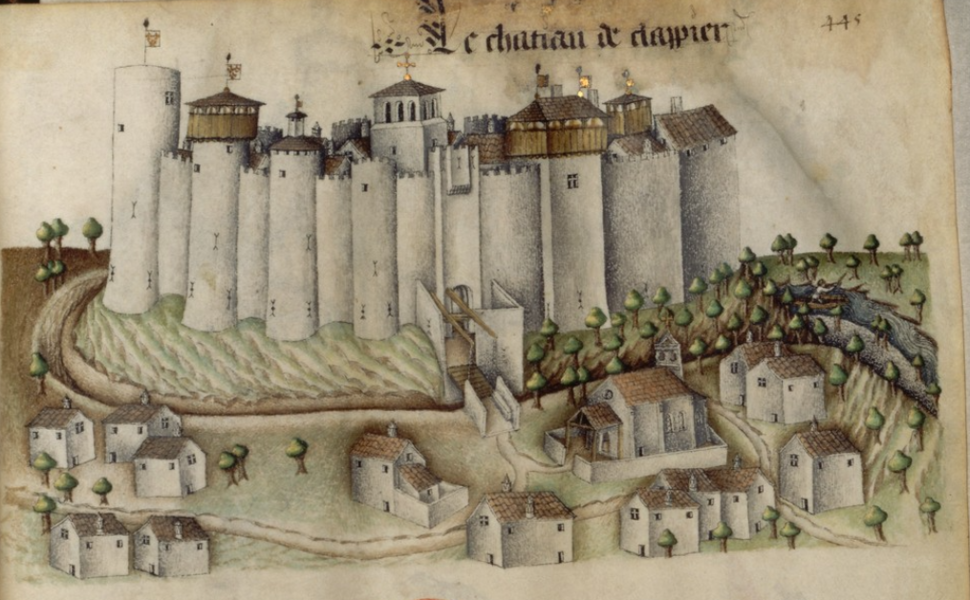 445
Le chatiau de clappier